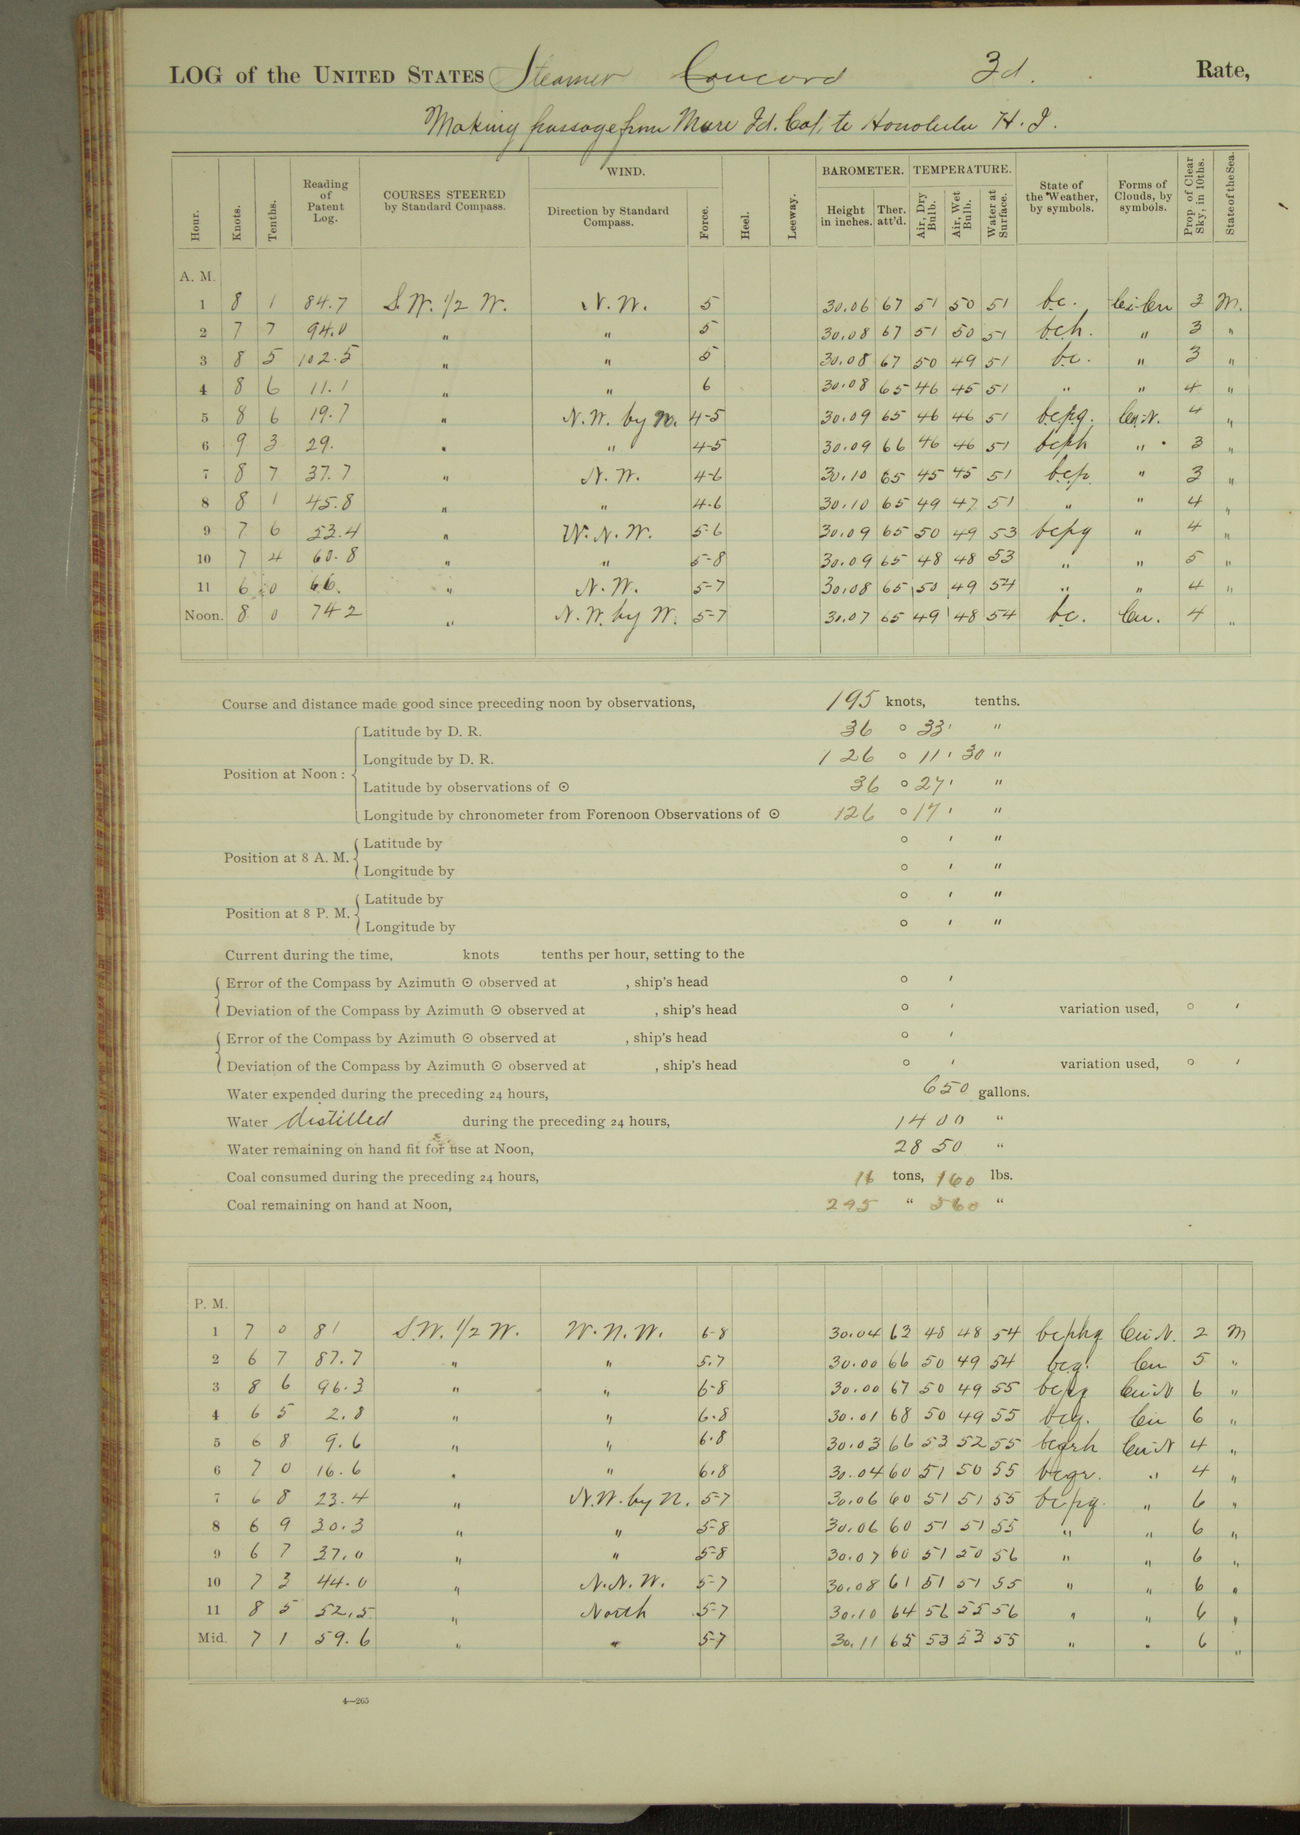 LOG of the UNITED STATES Steamer Concord 3d. Rate,
Making passage from Mare Id. Cal. to Honolulu H. I.
Hour. Knots. Tenths. Reading of Patent Log. COURSES STEERED by Standard Compass. WIND. Direction by Standard Compass. Force. Heel. Leeway. BAROMETER. Height in inches. Ther. att'd. TEMPERATURE. Air, Dry Bulb. Air, Wet Bulb. Water at Surface. State of the Weather, by symbols. Forms of Clouds, by symbols. Prop. of Clear Sky, in 10ths. State of the Sea.
A. M.
1 8 1 84.7 S.W. 1/2 W. N.W. 5 30.06 67 51 50 51 b.c. Ci-Cu 3 M.
2 7 7 94.0 " " 5 30.08 67 51 50 51 bch. " 3 "
3 8 5 102.5 " " 5 30.08 67 50 49 51 b.c. " 3 "
4 8 6 11.1 " " 6 30.08 65 46 45 51 " " 4 "
5 8 6 19.7 " N.W. by N. 4-5 30.09 65 46 46 51 bcpq. Cu-N. 4 "
6 9 3 29. " " 4-5 30.09 66 46 46 51 bcph " 3 "
7 8 7 37.7 " N.W. 4-6 30.10 65 45 45 51 bcp " 3 "
8 8 1 45.8 " " 4-6 30.10 65 49 47 51 " " 4 "
9 7 6 53.4 " W.N.W. 5-6 30.09 65 50 49 53 bcpq " 4 "
10 7 4 60.8 " " 5-8 30.09 65 48 48 53 " " 5 "
11 6 0 66. " N.W. 5-7 30.08 65 50 49 54 " " 4 "
Noon. 8 0 74 2 " N.W. by W. 5-7 30.07 65 49 48 54 b.c. Cu. 4 "
Course and distance made good since preceding noon by observations, 195 knots, tenths.
Position at Noon :
Latitude by D. R. 36 ° 33 ' "
Longitude by D. R. 126 ° 11 ' 30 "
Latitude by observations of ☉ 36 ° 27 ' "
Longitude by chronometer from Forenoon Observations of ☉ 126 ° 17 ' "
Position at 8 A. M.
Latitude by ° ' "
Longitude by ° ' "
Position at 8 P. M.
Latitude by ° ' "
Longitude by ° ' "
Current during the time, knots tenths per hour, setting to the
Error of the Compass by Azimuth ☉ observed at , ship's head ° '
Deviation of the Compass by Azimuth ☉ observed at , ship's head ° ' variation used, ° '
Error of the Compass by Azimuth ☉ observed at , ship's head ° '
Deviation of the Compass by Azimuth ☉ observed at , ship's head ° ' variation used, ° '
Water expended during the preceding 24 hours, 650 gallons.
Water distilled during the preceding 24 hours, 1400 "
Water remaining on hand fit for use at Noon, 2850 "
Coal consumed during the preceding 24 hours, 16 tons, 160 lbs.
Coal remaining on hand at Noon, 295 " 560 "
P. M.
1 7 0 81 S.W. 1/2 W. W.N.W. 6-8 30.04 63 48 48 54 bcphq Cu-N. 2 M
2 6 7 87.7 " " 5-7 30.00 66 50 49 54 bcq. Cu 5 "
3 8 6 96.3 " " 6-8 30.00 67 50 49 55 bcpq Cu-N 6 "
4 6 5 2.8 " " 6-8 30.01 68 50 49 55 bcq. Cu 6 "
5 6 8 9.6 " " 6-8 30.03 66 53 52 55 bcqrh Cu-N 4 "
6 7 0 16.6 " " 6-8 30.04 60 51 50 55 bcqr. " 4 "
7 6 8 23.4 " N.W. by N. 5-7 30.06 60 51 51 55 bcpq. " 6 "
8 6 9 30.3 " " 5-8 30.06 60 51 51 55 " " 6 "
9 6 7 37.0 " " 5-8 30.07 60 51 50 56 " " 6 "
10 7 3 44.0 " N.N.W. 5-7 30.08 61 51 51 55 " " 6 "
11 8 5 52.5 " North 5-7 30.10 64 56 55 56 " " 6 "
Mid. 7 1 59.6 " " 5-7 30.11 65 53 53 55 " " 6 "
4—265